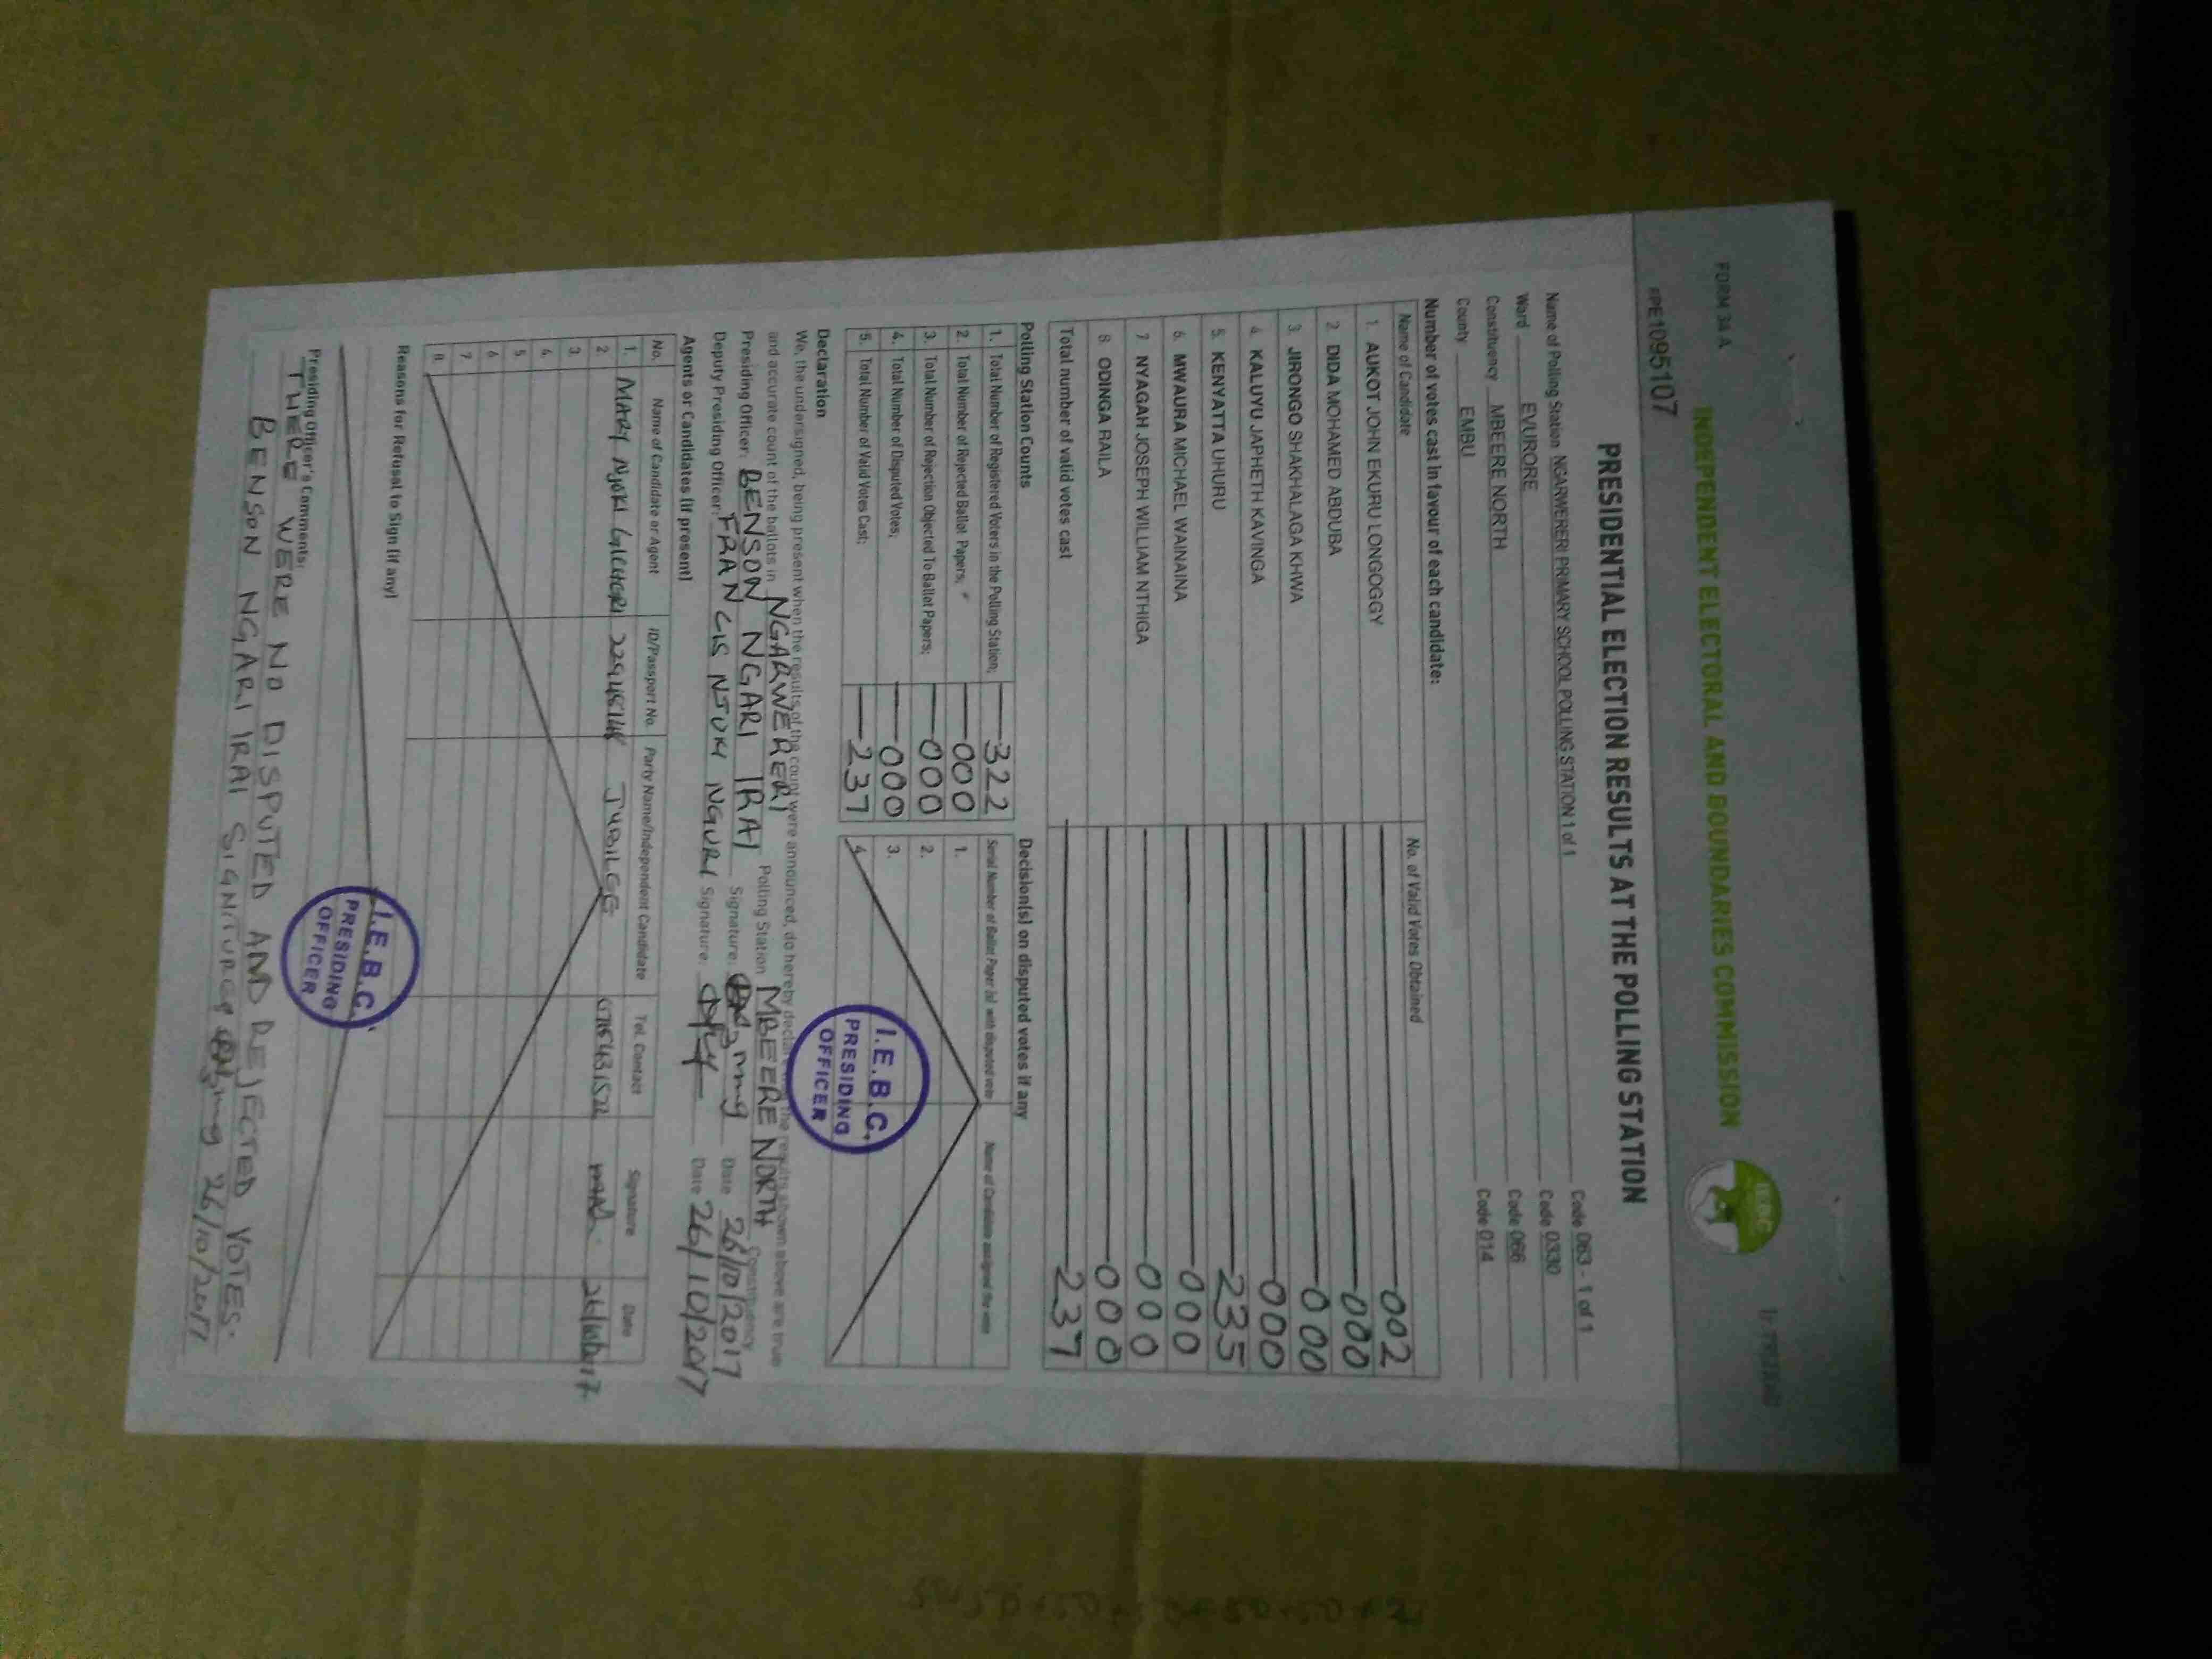 FORM 34 A
INDEPENDENT ELECTORAL AND BOUNDARIES COMMISSION
IEBC
PE1095107
PRESIDENTIAL ELECTION RESULTS AT THE POLLING STATION
Name of Polling Station NGARWERERI PRIMARY SCHOOL POLLING STATION 1 of 1 Code 063 - 1 of 1
Ward EVURORE Code 0330
Constituency MBEERE NORTH Code 066
County EMBU Code 014
Number of votes cast in favour of each candidate:
Name of Candidate No. of Valid Votes Obtained
1. AUKOT JOHN EKURU LONGOGGY 002
2. DIDA MOHAMED ABDUBA 000
3. JIRONGO SHAKHALAGA KHWA 000
4. KALUYU JAPHETH KAVINGA 000
5. KENYATTA UHURU 235
6. MWAURA MICHAEL WAINAINA 000
7. NYAGAH JOSEPH WILLIAM NTHIGA 000
8. ODINGA RAILA 000
Total number of valid votes cast 237
Polling Station Counts
1. Total Number of Registered Voters in the Polling Station; 322
2. Total Number of Rejected Ballot Papers; 000
3. Total Number of Rejection Objected To Ballot Papers; 000
4. Total Number of Disputed Votes; 000
5. Total Number of Valid Votes Cast; 237
Decision(s) on disputed votes if any
Serial Number of Ballot Paper (s) with disputed vote Name of Candidate assigned the vote
1.
2.
3.
4.
I.E.B.C.
PRESIDING
OFFICER
Declaration
We, the undersigned, being present when the results of the count were announced, do hereby declare the results shown above are true
and accurate count of the ballots in NGARWERERI Polling Station MBEERE NORTH Constituency
Presiding Officer: BENSON NGARI IRAI Signature: Date 26/10/2017
Deputy Presiding Officer: FRANCIS NJUKI NGURI Signature. Date 26/10/2017
Agents or Candidates (if present)
No. Name of Candidate or Agent ID/Passport No. Party Name/Independent Candidate Tel. Contact Signature Date
1. MARY NJOKI JUBILEE 26/10/2017
2.
3.
4.
5.
6.
7.
8.
Reasons for Refusal to Sign (if any)
I.E.B.C.
PRESIDING
OFFICER
Presiding Officer's Comments:
THERE WERE NO DISPUTED AND REJECTED VOTES.
BENSON NGARI IRAI SIGNATURE 26/10/2017